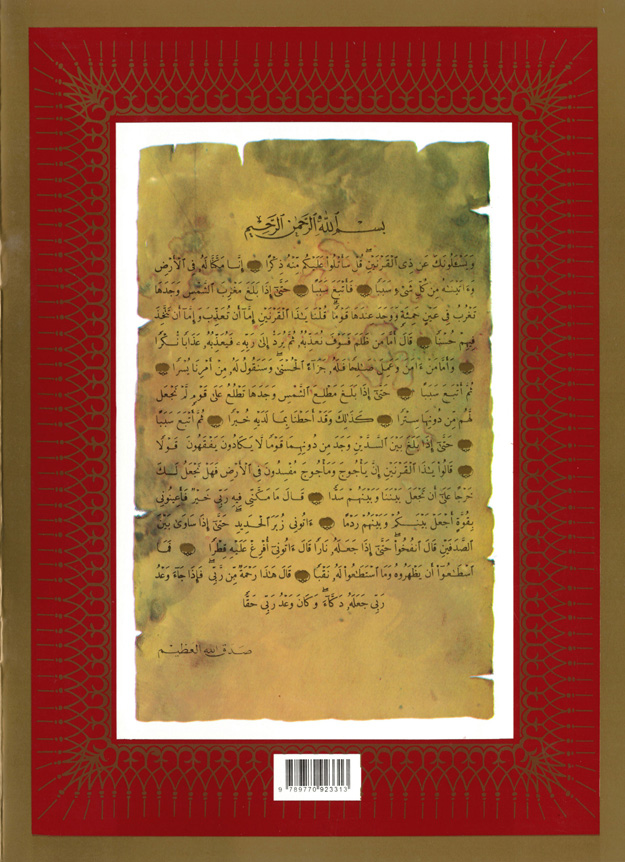 بِسْمِ ٱللَّهِ ٱلرَّحْمَٰنِ ٱلرَّحِيمِ
وَيَسْـَٔلُونَكَ عَن ذِى ٱلْقَرْنَيْنِ ۖ قُلْ سَأَتْلُوا۟ عَلَيْكُم مِّنْهُ ذِكْرًا ۝ إِنَّا مَكَّنَّا لَهُۥ فِى ٱلْأَرْضِ
وَءَاتَيْنَٰهُ مِن كُلِّ شَىْءٍ سَبَبًا ۝ فَأَتْبَعَ سَبَبًا ۝ حَتَّىٰٓ إِذَا بَلَغَ مَغْرِبَ ٱلشَّمْسِ وَجَدَهَا
تَغْرُبُ فِى عَيْنٍ حَمِئَةٍ وَوَجَدَ عِندَهَا قَوْمًا ۗ قُلْنَا يَٰذَا ٱلْقَرْنَيْنِ إِمَّآ أَن تُعَذِّبَ وَإِمَّآ أَن تَتَّخِذَ
فِيهِمْ حُسْنًا ۝ قَالَ أَمَّا مَن ظَلَمَ فَسَوْفَ نُعَذِّبُهُۥ ثُمَّ يُرَدُّ إِلَىٰ رَبِّهِۦ فَيُعَذِّبُهُۥ عَذَابًا نُّكْرًا
۝ وَأَمَّا مَنْ ءَامَنَ وَعَمِلَ صَٰلِحًا فَلَهُۥ جَزَآءً ٱلْحُسْنَىٰ ۖ وَسَنَقُولُ لَهُۥ مِنْ أَمْرِنَا يُسْرًا ۝
ثُمَّ أَتْبَعَ سَبَبًا ۝ حَتَّىٰٓ إِذَا بَلَغَ مَطْلِعَ ٱلشَّمْسِ وَجَدَهَا تَطْلُعُ عَلَىٰ قَوْمٍ لَّمْ نَجْعَل
لَّهُم مِّن دُونِهَا سِتْرًا ۝ كَذَٰلِكَ وَقَدْ أَحَطْنَا بِمَا لَدَيْهِ خُبْرًا ۝ ثُمَّ أَتْبَعَ سَبَبًا
۝ حَتَّىٰٓ إِذَا بَلَغَ بَيْنَ ٱلسَّدَّيْنِ وَجَدَ مِن دُونِهِمَا قَوْمًا لَّا يَكَادُونَ يَفْقَهُونَ قَوْلًا
۝ قَالُوا۟ يَٰذَا ٱلْقَرْنَيْنِ إِنَّ يَأْجُوجَ وَمَأْجُوجَ مُفْسِدُونَ فِى ٱلْأَرْضِ فَهَلْ نَجْعَلُ لَكَ
خَرْجًا عَلَىٰٓ أَن تَجْعَلَ بَيْنَنَا وَبَيْنَهُمْ سَدًّا ۝ قَالَ مَا مَكَّنِّى فِيهِ رَبِّى خَيْرٌ فَأَعِينُونِى
بِقُوَّةٍ أَجْعَلْ بَيْنَكُمْ وَبَيْنَهُمْ رَدْمًا ۝ ءَاتُونِى زُبَرَ ٱلْحَدِيدِ ۖ حَتَّىٰٓ إِذَا سَاوَىٰ بَيْنَ
ٱلصَّدَفَيْنِ قَالَ ٱنفُخُوا۟ ۖ حَتَّىٰٓ إِذَا جَعَلَهُۥ نَارًا قَالَ ءَاتُونِىٓ أُفْرِغْ عَلَيْهِ قِطْرًا ۝ فَمَا
ٱسْطَٰعُوٓا۟ أَن يَظْهَرُوهُ وَمَا ٱسْتَطَٰعُوا۟ لَهُۥ نَقْبًا ۝ قَالَ هَٰذَا رَحْمَةٌ مِّن رَّبِّى ۖ فَإِذَا جَآءَ وَعْدُ
رَبِّى جَعَلَهُۥ دَكَّآءَ ۖ وَكَانَ وَعْدُ رَبِّى حَقًّا
صدق الله العظيم
9 789770 923313